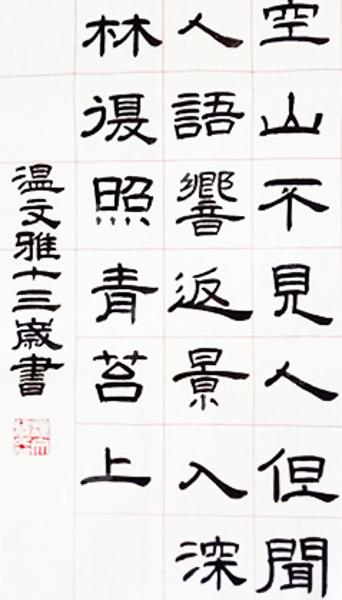 空山不見人但聞
人語響返景入深
林復照青苔上
溫文雅十三歲書